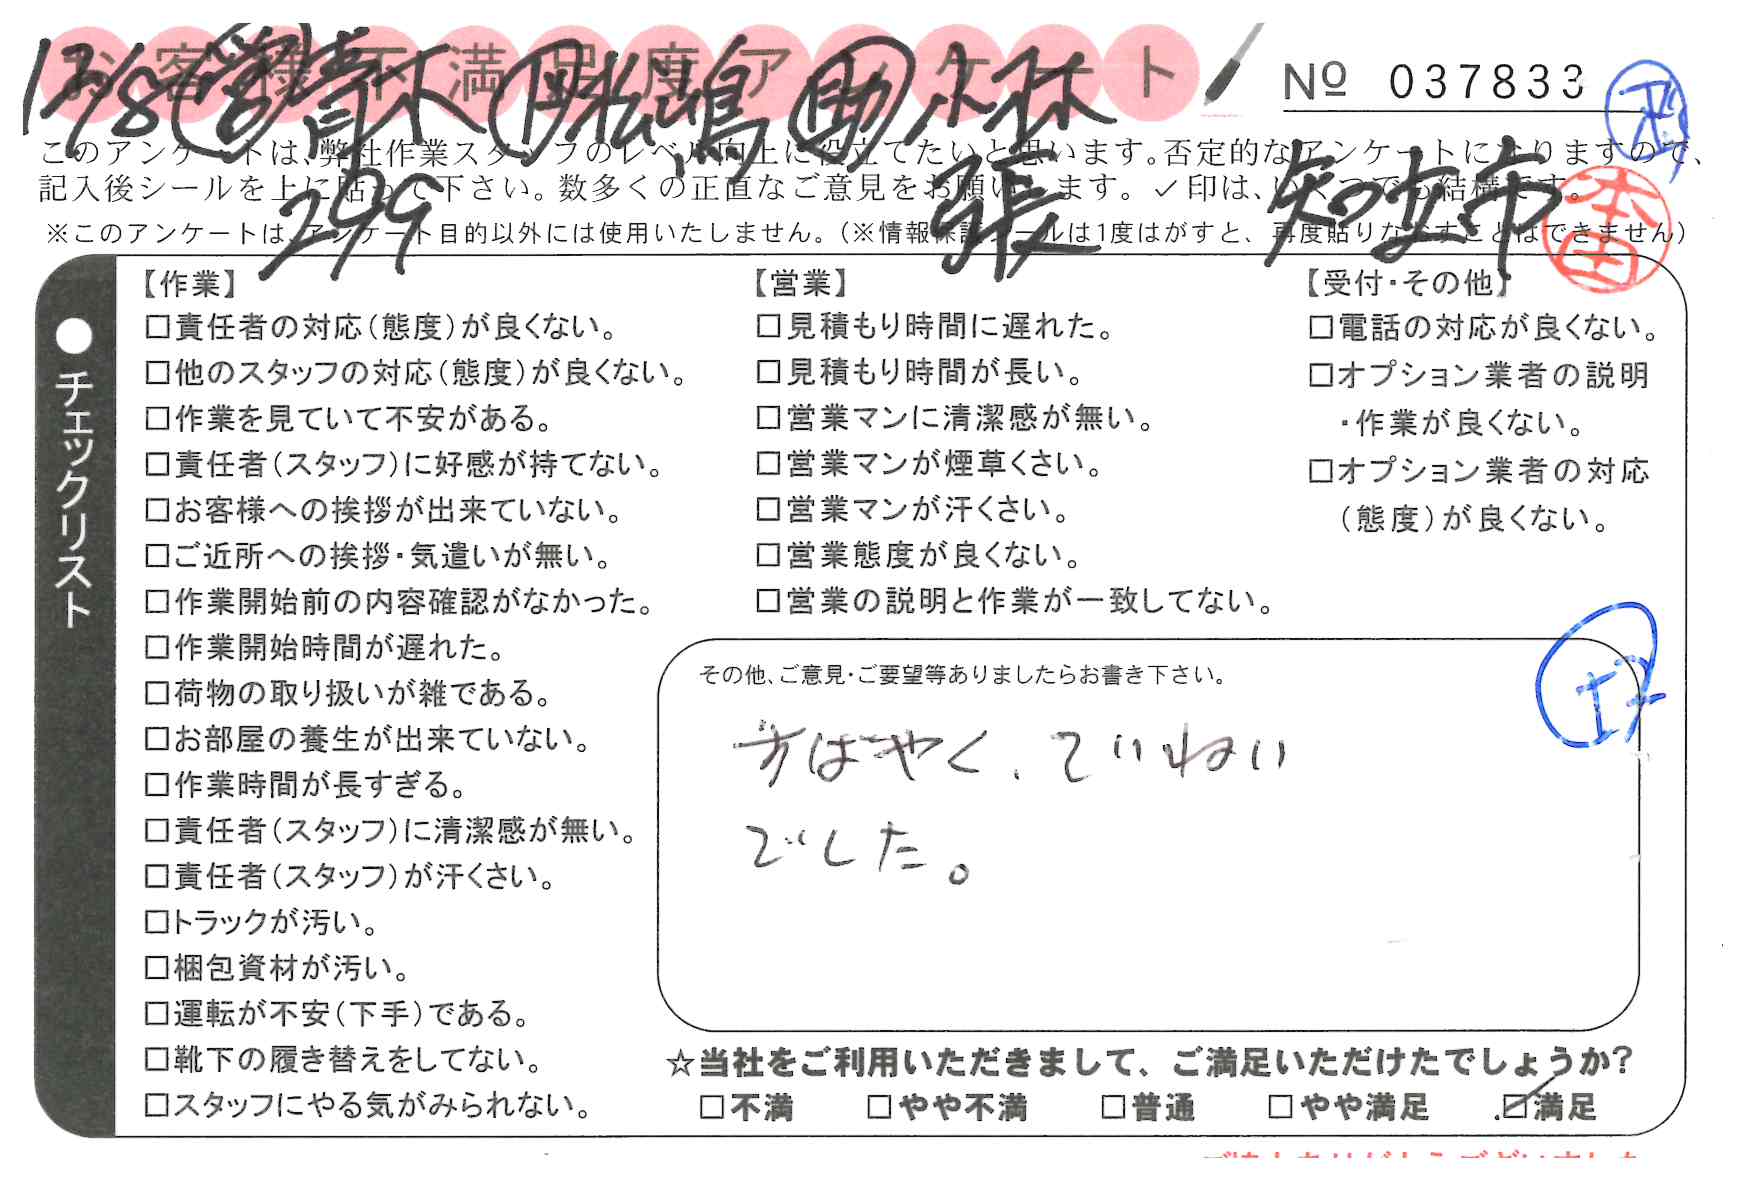 お客様不満足度アンケート
No 037833
12/8 営 青木 作 松嶋 助 小林
299 張 知立市
このアンケートは、弊社作業スタッフのレベル向上に役立てたいと思います。否定的なアンケートになりますので、
記入後シールを上に貼って下さい。数多くの正直なご意見をお願いします。✓印は、いくつでも結構です。
※このアンケートは、アンケート目的以外には使用いたしません。(※情報保護シールは1度はがすと、再度貼りなおすことはできません)
本田
●チェックリスト
【作業】
□責任者の対応(態度)が良くない。
□他のスタッフの対応(態度)が良くない。
□作業を見ていて不安がある。
□責任者(スタッフ)に好感が持てない。
□お客様への挨拶が出来ていない。
□ご近所への挨拶・気遣いが無い。
□作業開始前の内容確認がなかった。
□作業開始時間が遅れた。
□荷物の取り扱いが雑である。
□お部屋の養生が出来ていない。
□作業時間が長すぎる。
□責任者(スタッフ)に清潔感が無い。
□責任者(スタッフ)が汗くさい。
□トラックが汚い。
□梱包資材が汚い。
□運転が不安(下手)である。
□靴下の履き替えをしてない。
□スタッフにやる気がみられない。
【営業】
□見積もり時間に遅れた。
□見積もり時間が長い。
□営業マンに清潔感が無い。
□営業マンが煙草くさい。
□営業マンが汗くさい。
□営業態度が良くない。
□営業の説明と作業が一致してない。
【受付・その他】
□電話の対応が良くない。
□オプション業者の説明
・作業が良くない。
□オプション業者の対応
(態度)が良くない。
その他、ご意見・ご要望等ありましたらお書き下さい。
すばやく、ていねい
でした。
☆当社をご利用いただきまして、ご満足いただけたでしょうか?
□不満 □やや不満 □普通 □やや満足 ☑満足